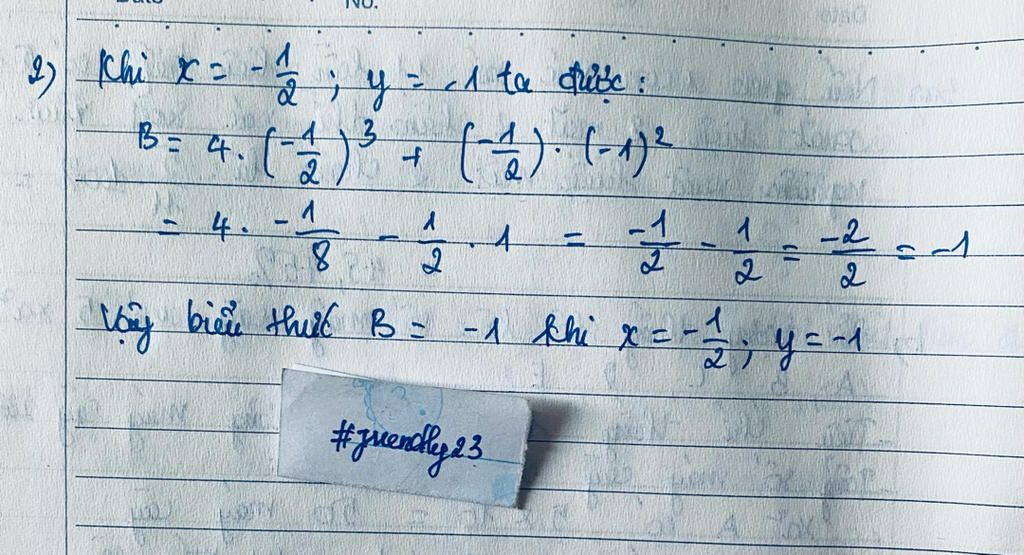 No.
2) Khi x = -1/2 ; y = -1 ta được:
B = 4 . (-1/2)^3 + (-1/2) . (-1)^2
= 4 . -1/8 - 1/2 . 1 = -1/2 - 1/2 = -2/2 = -1
Vậy biểu thức B = -1 khi x = -1/2 ; y = -1